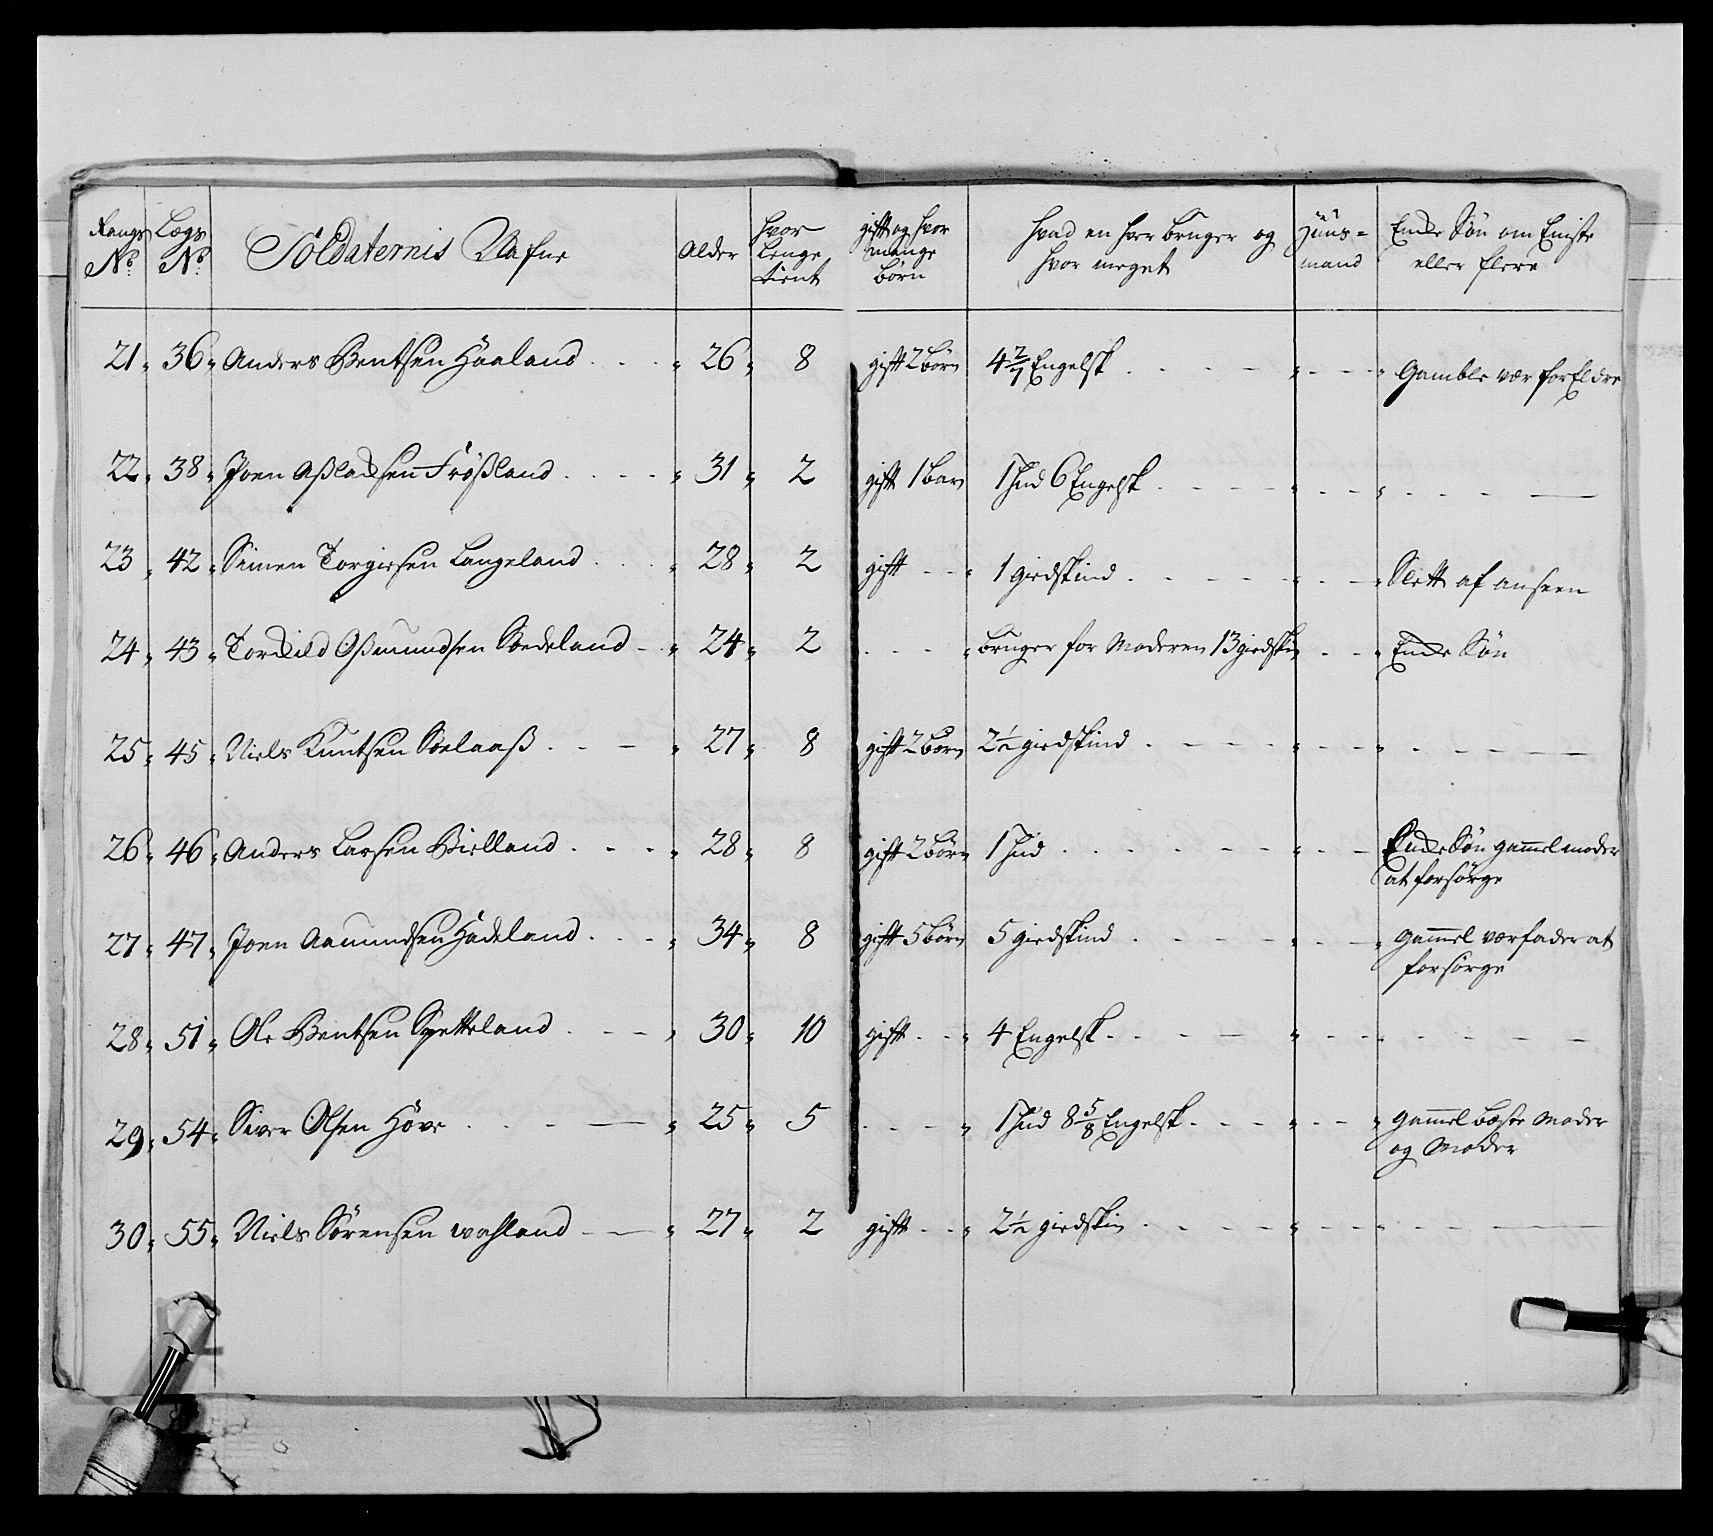 Rangs No. Lægs No. Soldaternis Nafne Alder hvor Lenge tient gift og hvor mange börn hvad en hver bruger og hvor meget Huus=mand Ende Sön om Eniste eller flere
21 36 Anders Bentsen Haaland 26 8 gift 2 börn 4 2/7 Engelsk Gamble vær forEldre
22 38 Joen Aßlacksen Frößland 31 2 gift 1 barn 1 hud 6 Engelsk
23 42 Simen Torgiersen Langeland 28 2 gift 1 giedskind Slett af anseen
24 43 Torkild Oßmundsen Sædeland 24 2 bruger for Moderen 13 giedskin Ende Sön
25 45 Niels Knutsen Sælaaß 27 8 gift 2 börn 2½ giedskind
26 46 Anders Larsen Bielland 28 8 gift 2 börn 1 hud Ende Sön gammel moder
at forsörge
27 47 Joen Aamundsen Hadeland 34 8 gift 5 börn 5 giedskind gammel værfader at
forsörge
28 51 Ole Bentsen Spetteland 30 10 gift 4 Engelsk
29 54 Siver Olsen Höve 25 5 1 hud 8 5/8 Engelsk gammel beste Moder
og Moder
30 55 Niels Sörensen wasland 27 2 gift 2½ giedskin